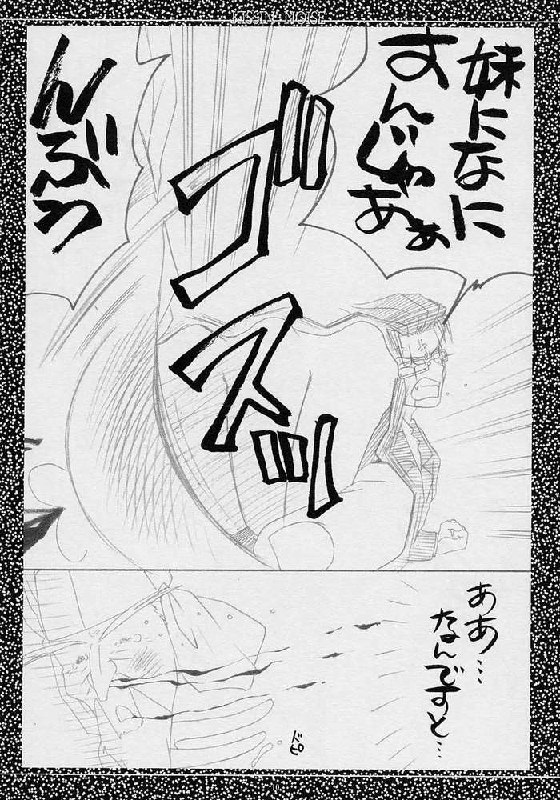 妹になに
すんじゃあぁ
んぶっ
ブスッ
ああ…
なんですと…
ドピ